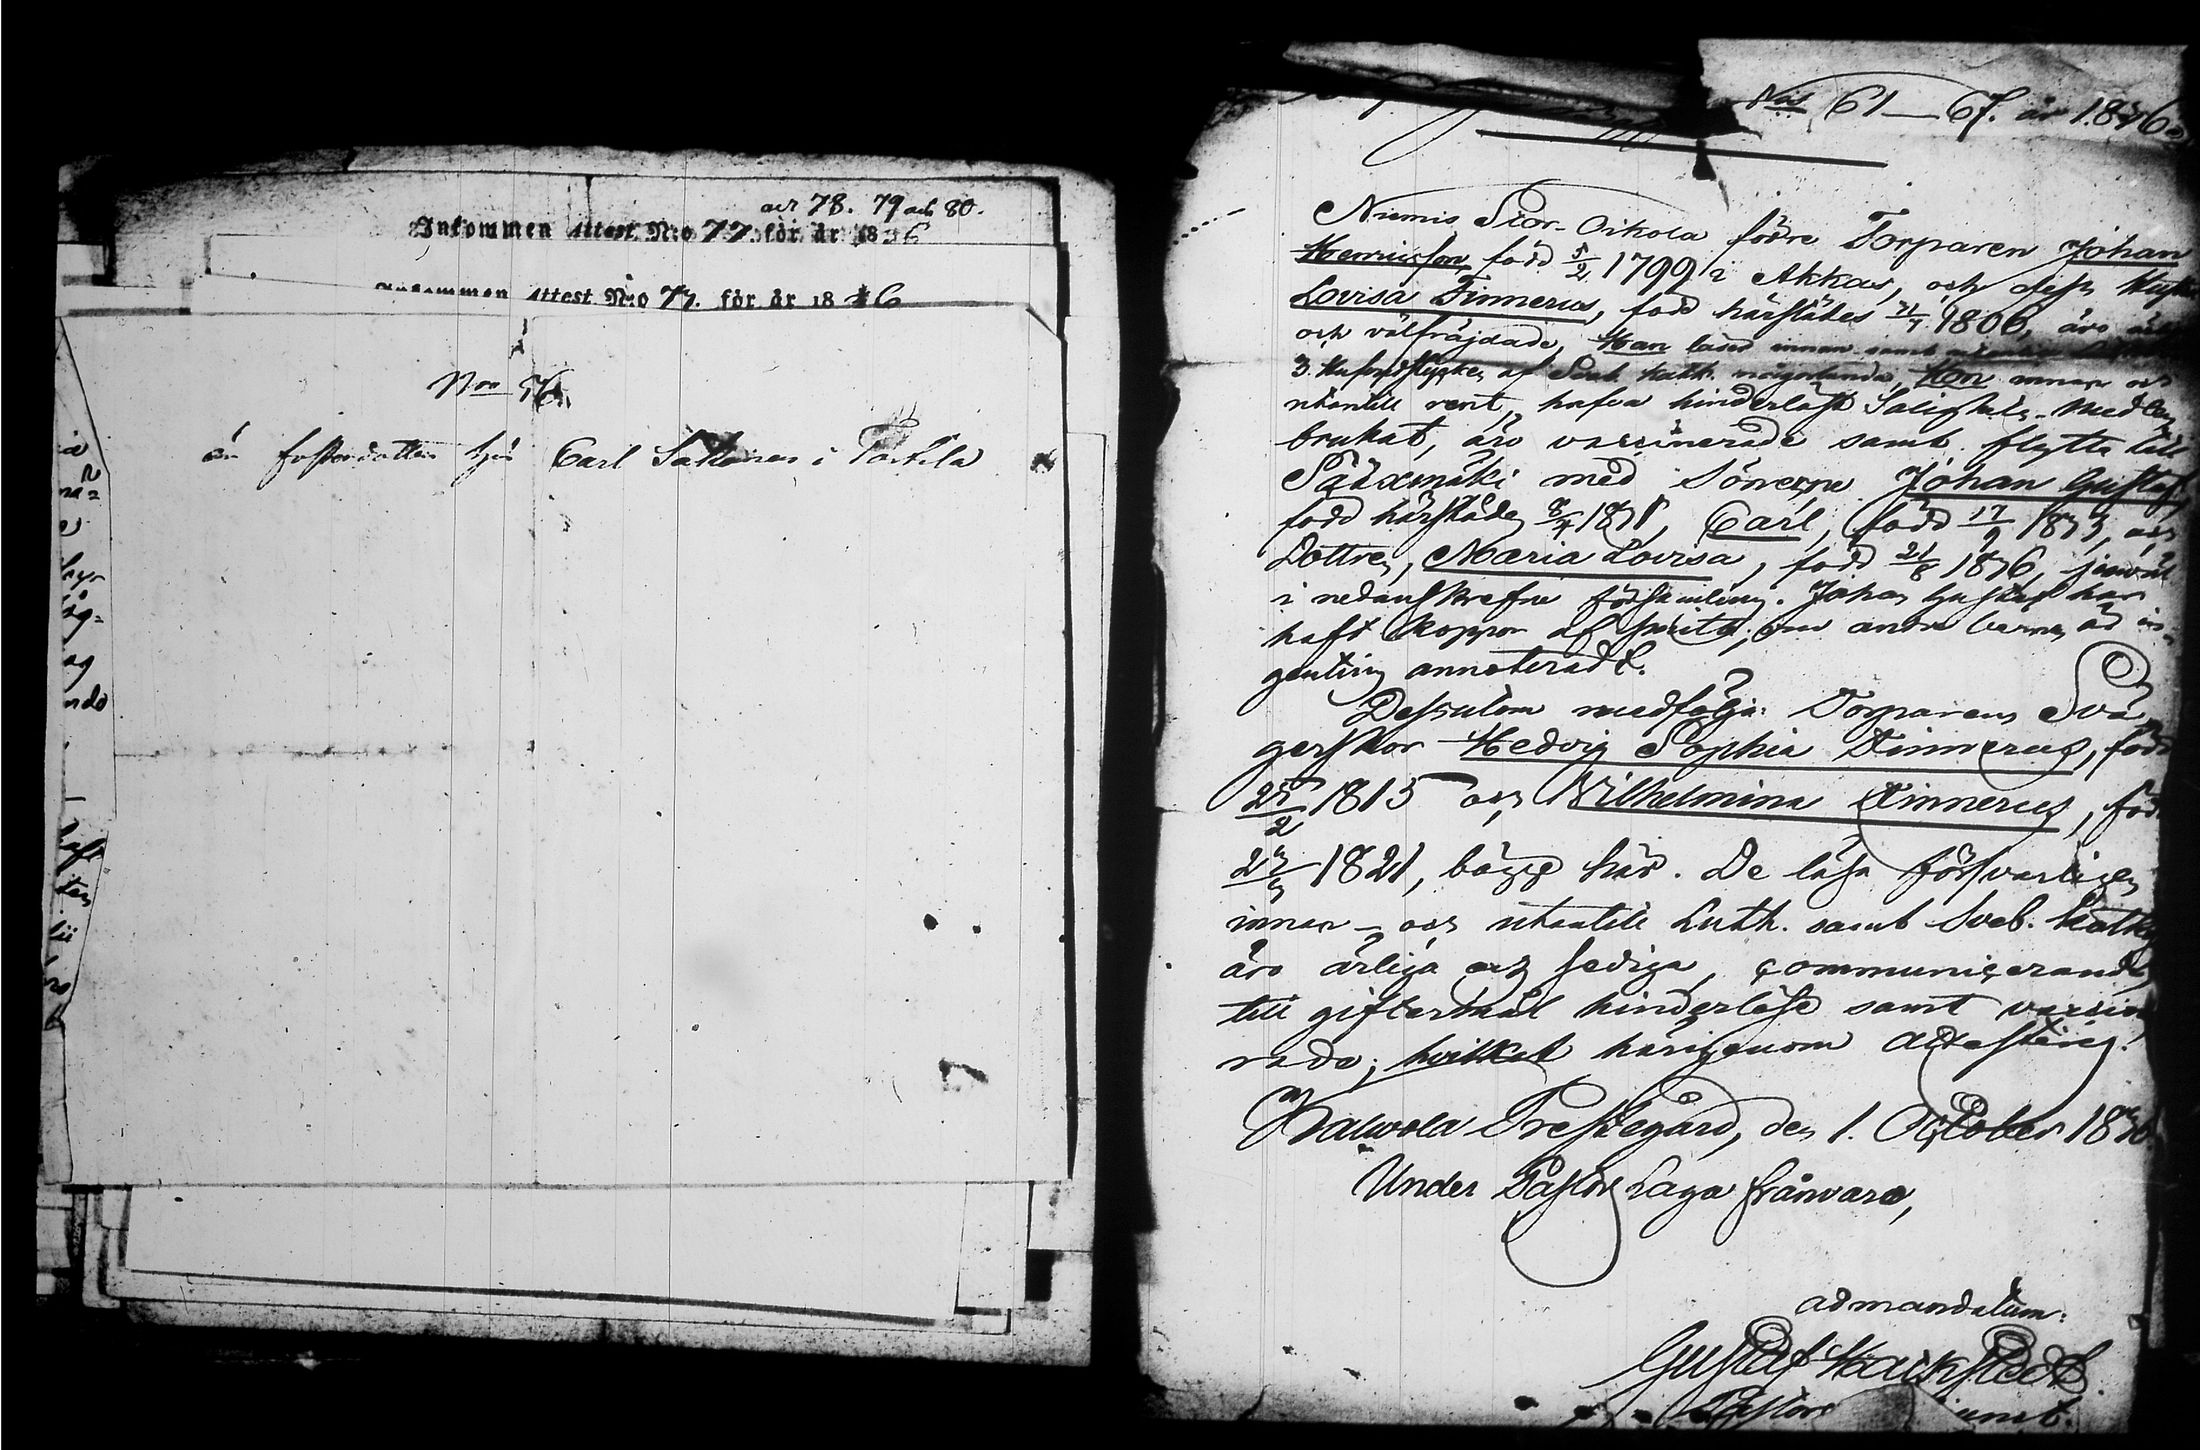 och 78. 79 och 80.
Inkommen Attest N:o 77. för år 1836
Inkommen Attest N:o 77. för år 1836
Nro 76.
är fosterdotter hos Carl Saltonen i
N:is 61–67. år 1836.
Niemis Stor-Oikola förre Torparen Johan
Henricsson, född 5/2 1799 i Akkas, och dess Hustru
Lovisa Finnerus, född härstädes 1806, äro
och välfräjdade, Han läser innan samt
3. Hufvudstycken af Sveb. Kath. någorlunda, Hon innan och
utantill rent, hafva hinderlöst Salighets-Medlen
brukat, äro vaccinerade samt flytta till
Sääxmäki med Sönerne Johan Gustaf,
född härstädes 8/4 1831, Carl, född 17/9 1833, och
Dottren, Maria Lovisa, född 21/8 1836, jemväl
i nedanskrefne församling. Johan Gustaf har
haft koppor af smitta, om andra barnen är in-
genting annoteradt.
Dessutom medfölja Torparens Svä-
gerskor Hedvig Sophia Finnerus, född
25/2 1815 och Wilhelmina Finnerus, född
1821, bägge här. De läsa försvarligen
innan- och utantill Luth. samt Sveb. Kath.
äro ärliga och sediga, communicerande,
till giftermål hinderlöse samt vaccine-
rade; hvilket härigenom attesteras.
Kalvola Prestegård, den 1. October 1836.
Under Pastors Laga frånvaro,
ad mandatum:
Gustaf Hackstedt
Pastors